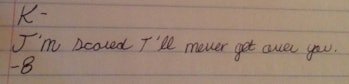 K-
I'm scared I'll never get over you.
-B